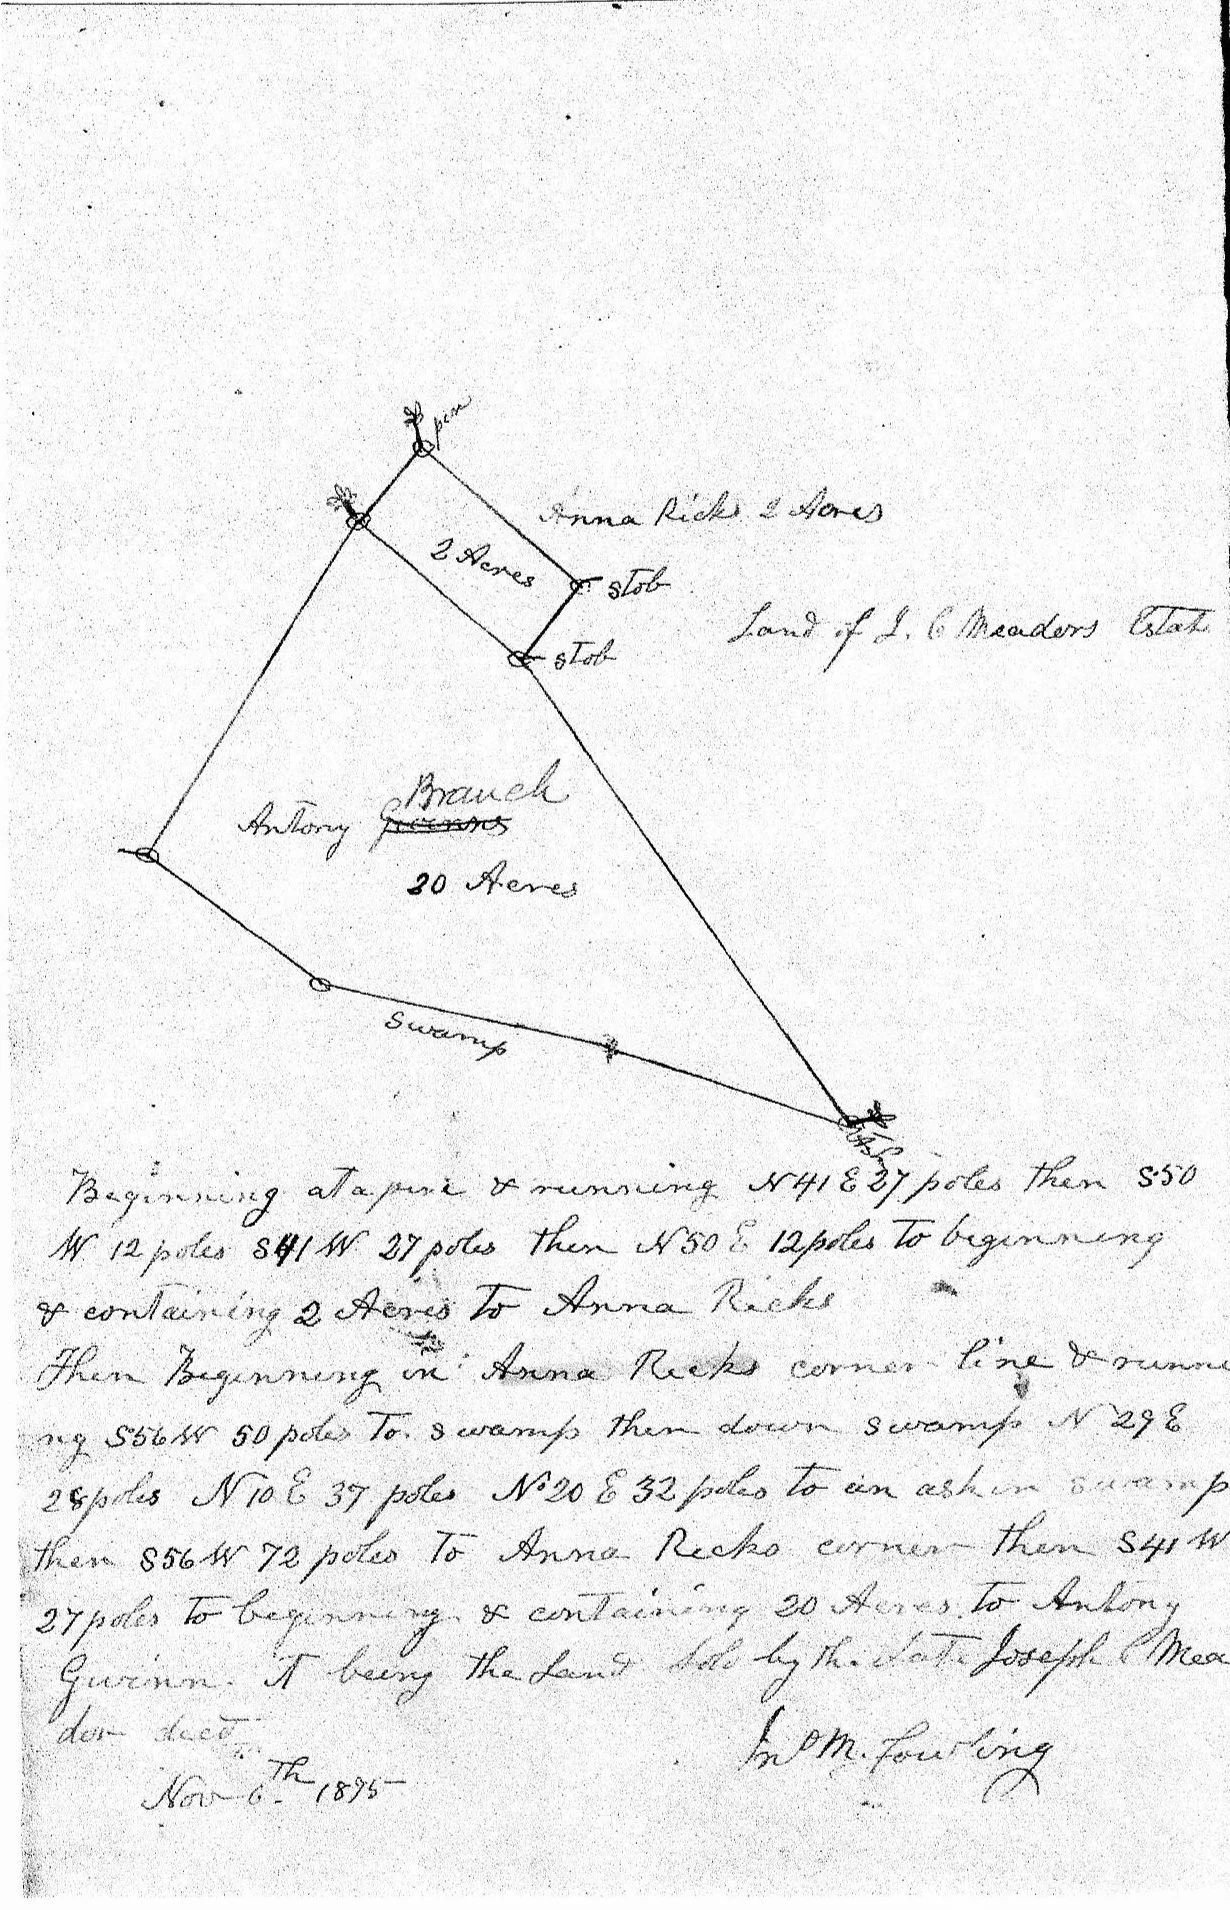 pine
Anna Ricks 2 Acres
2 Acres
stob
Land of J. C Meadors Estate
stob
Branch
Antony Gwinns
20 Acres
Swamp
Ash
Beginning at a pine & running N41E 27 poles then S50
W 12 poles S41W 27 poles then N50E 12 poles to beginning
& containing 2 Acres to Anna Ricks
Then Beginning in Anna Ricks corner line & runni
ng S56W 50 poles to swamp then down swamp N29E
28 poles N10E 37 poles No 20 E 32 poles to an ash in swamp
then S56W 72 poles to Anna Ricks corner then S41W
27 poles to beginning & containing 20 Acres to Antony
Gwinn. It being the Land sold by the late Joseph C Mea
dor decd
Jno M. Fowling
Nov 6th 1895